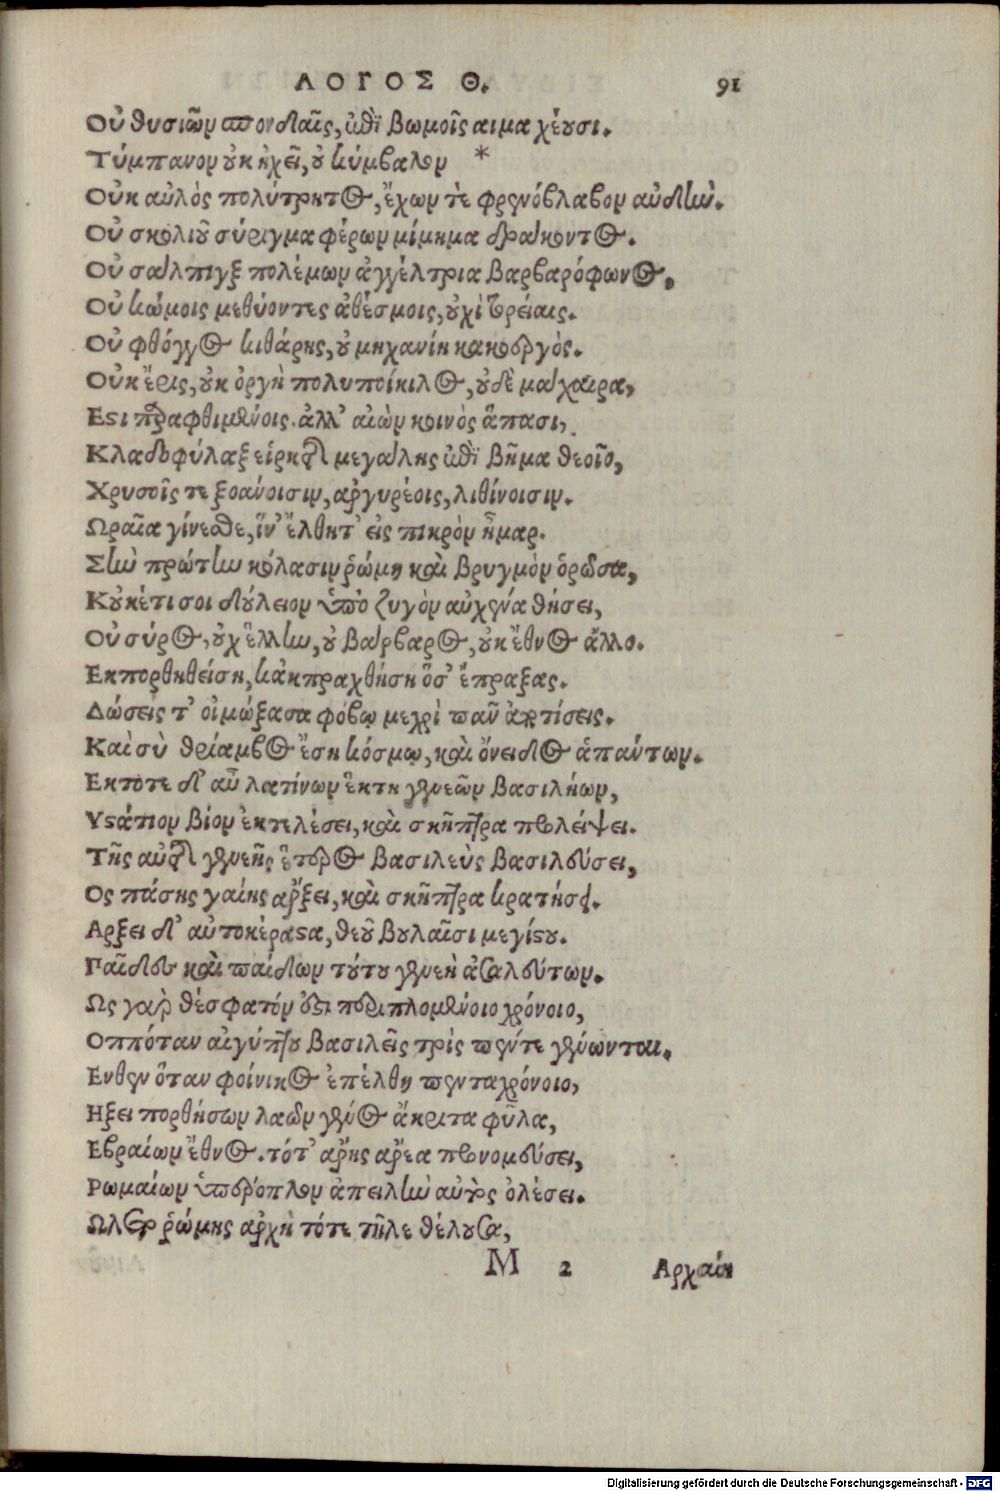 ΛΟΓΟΣ Θ. 91
Οὐ θυσιῶν σπονδαῖς, ἐπὶ βωμοῖς αιμα χέουσι.
Τύμπανον οὐκ ἠχεῖ, οὐ κύμβαλον *
Οὐκ αὐλὸς πολύτρητος, ἔχων τὲ φρενόβλαβον αὐδὴν.
Οὐ σκολιοῦ σύριγμα φέρων μίμημα δράκοντος.
Οὐ σάλπιγξ πολέμων ἀγγέλτρια βαρβαρόφωνος,
Οὐ κώμοις μεθύοντες ἀθέσμοις, οὐχὶ χορείαις.
Οὐ φθόγγος κιθάρης, οὐ μηχανίη κακοῦργὸς.
Οὐκ ἔρις, οὐκ ὀργὴ πολυποίκιλος, οὐδὲ μάχαιρα,
Εστι παραφθιμένοις. ἀλλ' αἰὼν κοινὸς ἅπασι,
Κλαδοφύλαξ εἱρκτῆς μεγάλης ἐπὶ βῆμα θεοῖο,
Χρυσοῖς τε ξοάνοισιν, ἀργυρέοις, λιθίνοισιν.
Ωραῖα γίνεσθε, ἵν' ἔλθητ' εἰς πικρὸν ἦμαρ.
Σὴν πρώτην κόλασιν ῥώμη καὶ βρυγμὸν ὁρῶσα,
Κοὐκέτι σοι δούλειον ὑπὸ ζυγὸν αὐχένα θήσει,
Οὐ σύρος, οὐχ ἕλλην, οὐ βάρβαρος, οὐκ ἔθνος ἄλλο.
Εκπορθηθείση, κἀκπραχθήση ὅσ' ἔπραξας.
Δώσεις τ' οἰμώξασα φόβῳ μεχρὶ πᾶν ἀρτίσεις.
Καὶ σὺ θρίαμβος ἔση κόσμῳ, καὶ ὄνειδος ἁπάντων.
Εκτοτε δ' αὖ λατίνων ἕκτη γενεῶν βασιλήων,
Υστάτιον βίον ἐκτελέσει, καὶ σκῆπτρα πολείψει.
Τῆς αὐτῆς γενεῆς ἕτερος βασιλεὺς βασιλεύσει,
Ος πάσης γαίης ἄρξει, καὶ σκῆπτρα κρατήσει.
Αρξει δ' αὐτοκέραστα, θεοῦ βουλαῖσι μεγίστου.
Παῖδες καὶ παίδων τούτου γενεὴ ἀσαλεύτων.
Ως γὰρ θέσφατόν ἐστι περιπλομένοιο χρόνοιο,
Οππόταν αἰγύπτου βασιλεῖς τρὶς πέντε γένωνται.
Ενθεν ὅταν φοίνικος ἐπέλθῃ πενταχρόνοιο,
Ηξει πορθήσων λαῶν γένος ἄκριτα φῦλα,
Εβραίων ἔθνος. τότ' ἄρης ἄρεα προνομεύσει,
Ρωμαίων ὑπέροπλον ἀπειλὴν αὐτὸς ὀλέσει.
Ωλεσε ῥώμης ἀρχὴ τότε τῆλε θέλουσα,
M 2 Αρχαίη